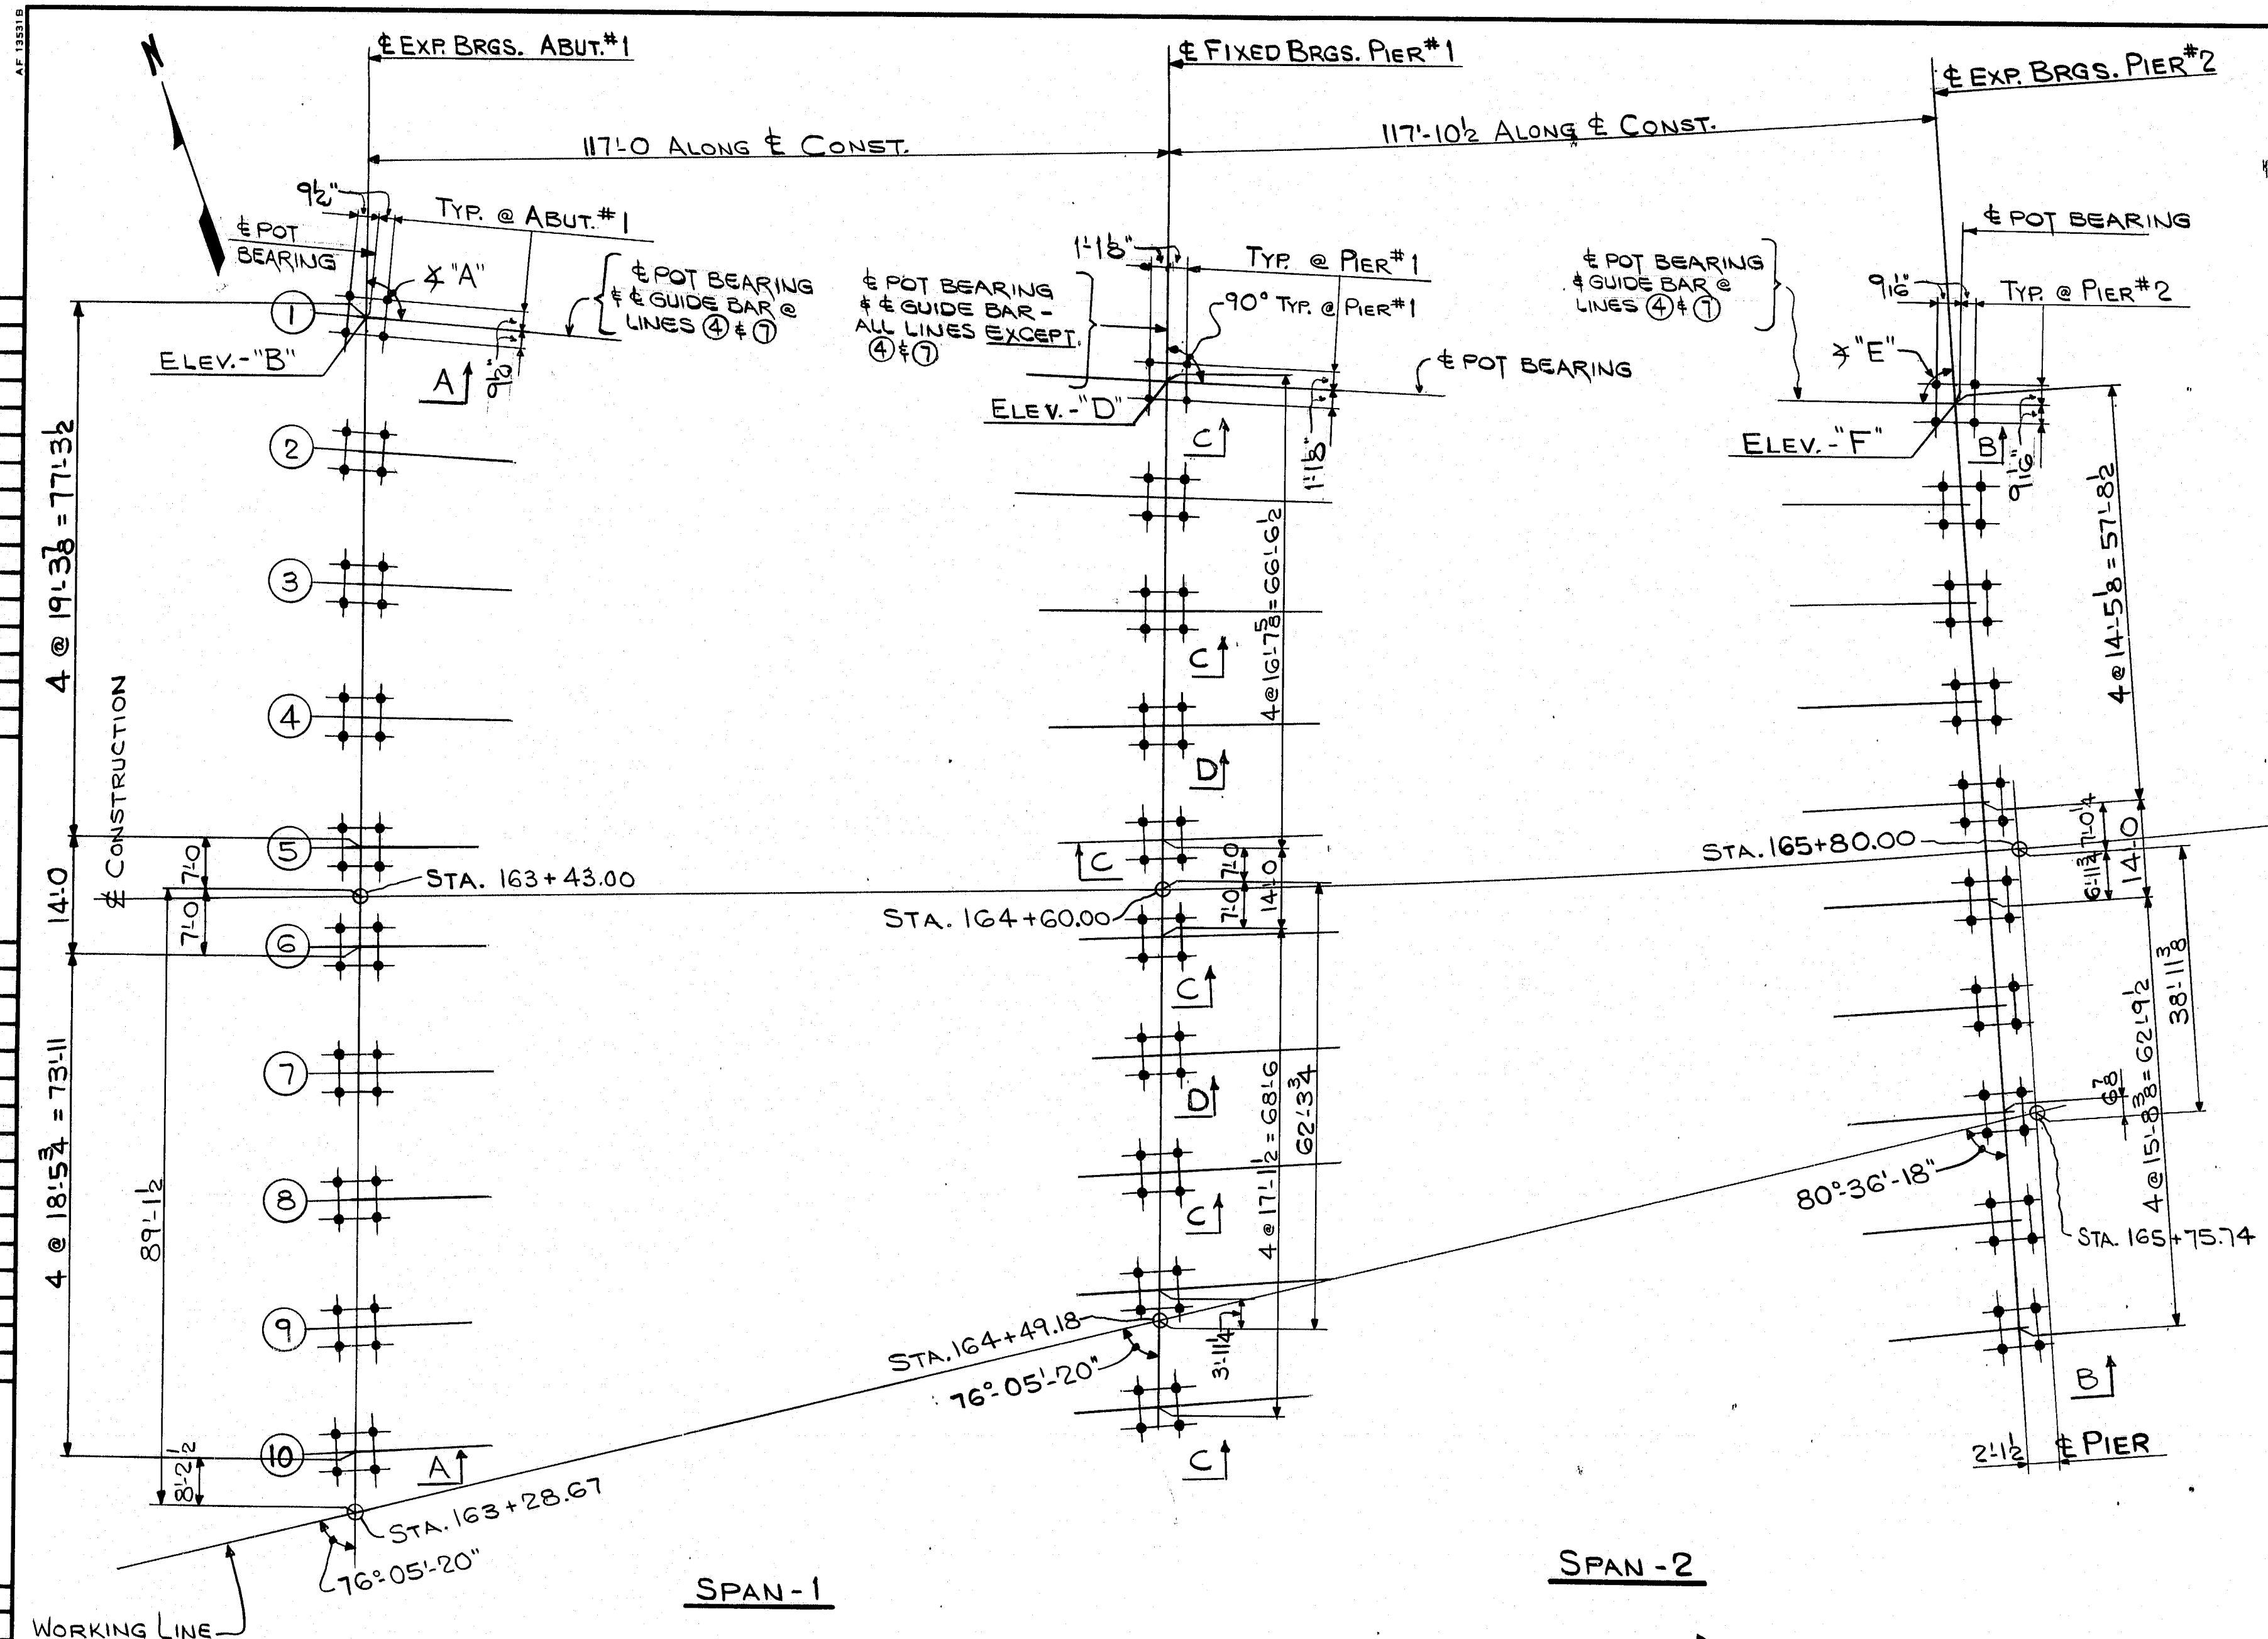 AF 13531B
N
℄ EXP. BRGS. ABUT. #1
℄ FIXED BRGS. PIER #1
℄ EXP. BRGS. PIER #2
117'-0 ALONG ℄ CONST.
117'-10½ ALONG ℄ CONST.
9½"
TYP. @ ABUT. #1
℄ POT
BEARING
∡ "A"
℄ POT BEARING
& ℄ GUIDE BAR @
LINES ④ & ⑦
①
ELEV.-"B"
A
9½"
℄ POT BEARING
& ℄ GUIDE BAR -
ALL LINES EXCEPT
④ & ⑦
1'-1⅛"
TYP. @ PIER #1
90° TYP. @ PIER #1
℄ POT BEARING
ELEV.-"D"
C
1'-1⅛"
℄ POT BEARING
& GUIDE BAR @
LINES ④ & ⑦
℄ POT BEARING
9 1/16"
TYP. @ PIER #2
∡ "E"
ELEV.-"F"
B
9 1/16"
②
③
④
⑤
⑥
⑦
⑧
⑨
⑩
4 @ 19'-3⅞ = 77'-3½
14'-0
4 @ 18'-5¾ = 73'-11
℄ CONSTRUCTION
7'-0
7'-0
89'-1½
8'-2½
STA. 163+43.00
A
STA. 163+28.67
76°-05'-20"
WORKING LINE
4 @ 16'-7⅝ = 66'-6½
C
D
C
7'-0
7'-0
14'-0
STA. 164+60.00
C
D
4 @ 17'-1½ = 68'-6
62'-3¾
C
STA. 164+49.18
76°-05'-20"
3'-11¼
C
4 @ 14'-5⅛ = 57'-8½
STA. 165+80.00
7'-0¼
6'-11¾
14'-0
38'-11⅜
6⅞
4 @ 15'-8⅜ = 62'-9½
80°-36'-18"
STA. 165+75.74
B
2'-1½
℄ PIER
SPAN-1
SPAN-2